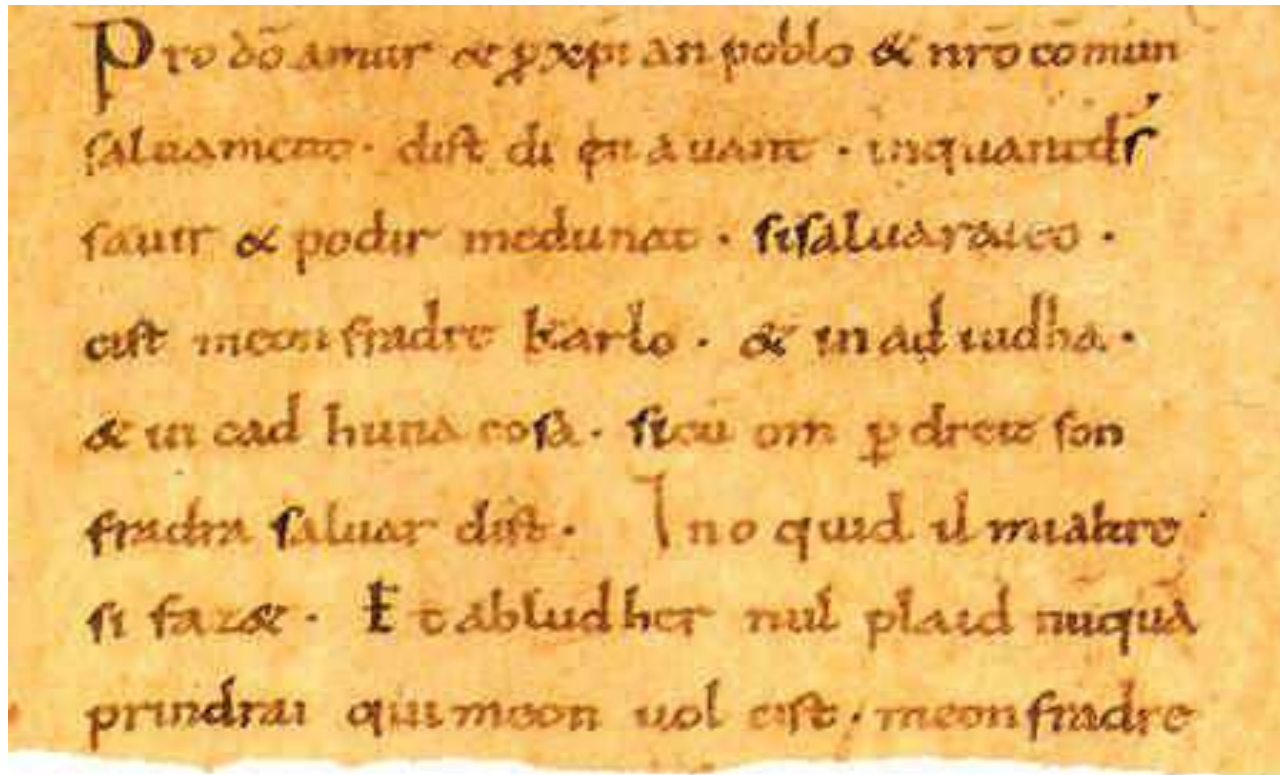 Pro dō amur & ꝓ xp̄ian poblo & nr̄o cōmun
saluament. dist di en auant. inquantdś
sauir & podir medunat. sisaluaraieo.
cist meon fradre karlo. & in ad iudha.
& in cad huna cosa. sicū om ꝑ dreit son
fradra saluar dist. Ino quid il mialtre
si faz&. Et abludher nul plaid nūquā
prindrai qui meon uol cist. meon fradre